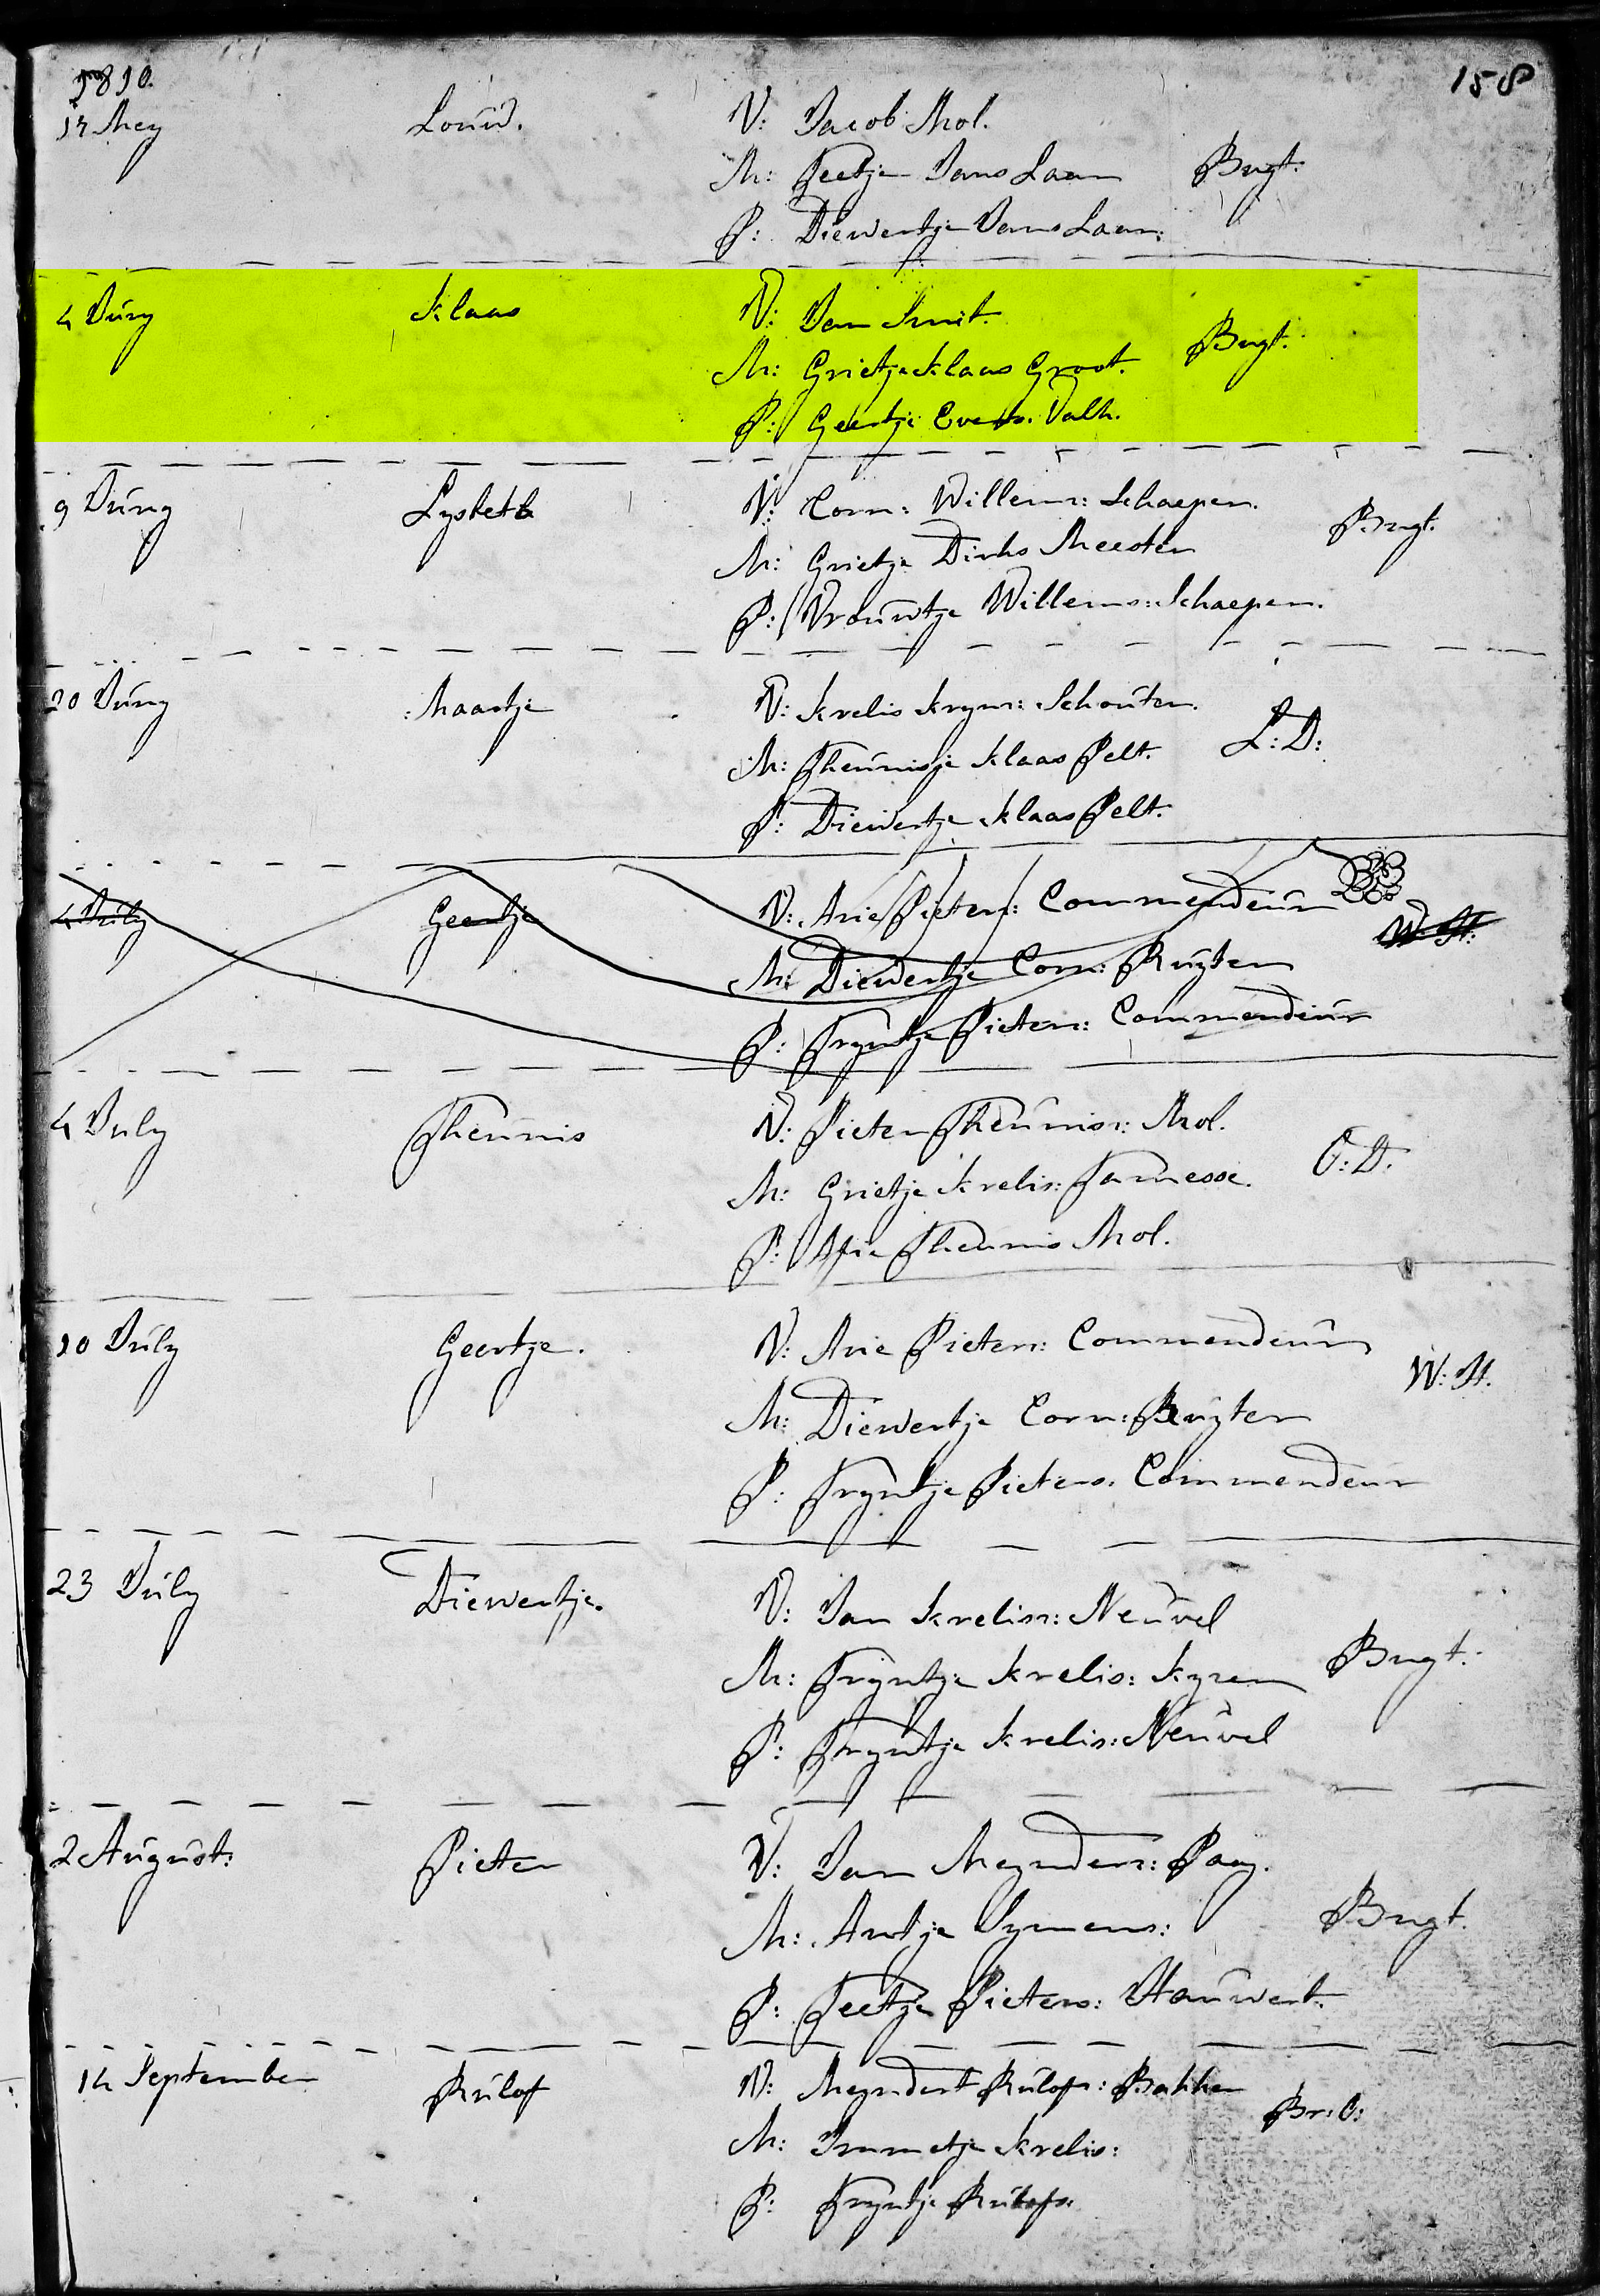 1810. 158
17 Mey Louw. V: Jacob Mol.
M: Teetje Jans Laan Brgt.
P: Diewertje Jans Laan.
4 Juny Klaas V: Jan Smit.
M: Grietje Klaas Groot. Brgt.
P: Geertje Everts. Valk.
9 Juny Lysbeth V: Corn: Willems: Schaepen. Brgt.
M: Grietje Dirks Meester
P: Vrouwtje Willems: Schaepen.
20 Juny Maartje V: Krelis Kryns: Schouten.
M: Theunisje Klaas Pelt. L: D:
P: Diewertje Klaas Pelt.
4 July Geertje V: Arie Pieters: Commendeur W: H:
M: Diewertje Corn: Ruyter
P: Tryntje Pieters: Commendeur
4 July Theunis V: Pieter Theuniss: Mol.
M: Grietje Krelis: Tamesse. O: D.
P: Afie Theunis Mol.
10 July Geertje. V: Arie Pieters: Commendeur
M: Diewertje Corn: Ruyter W: H.
P: Tryntje Pieters. Commendeur
23 July Diewertje. V: Jan Kreliss: Neuvel
M: Tryntje Krelis: Brgt.
P: Tryntje Krelis: Neuvel
2 August: Pieter V: Jan Meynders: Paay.
M: Antje Symens: Brgt.
P: Teetje Pieters: Hauwert.
14 September Rulof V: Meyndert Rulofs: Bakker
M: Immetje Krelis: Br: O:
P: Tryntje Rulofs.